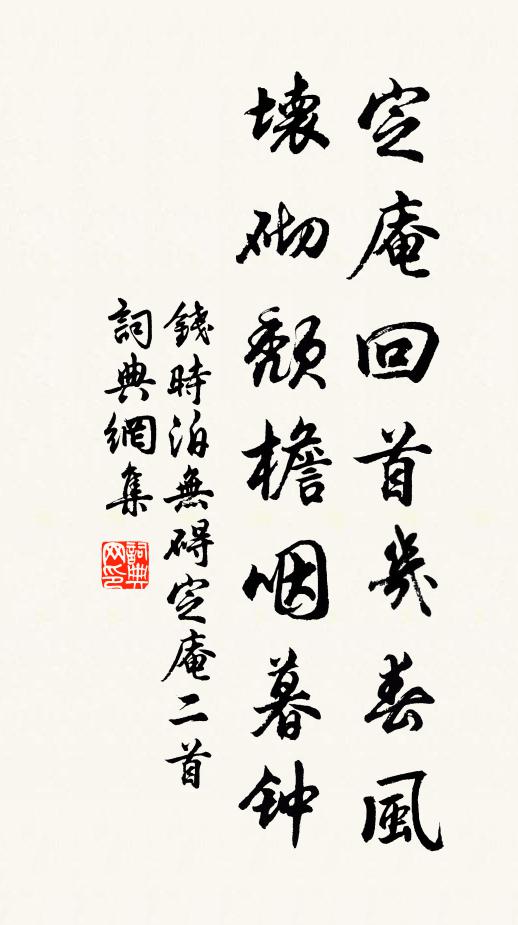 定庵回首幾春風
壞砌頽檐咽暮钟
錢時泊無碍定庵二首
詞典網集
詞典
网印